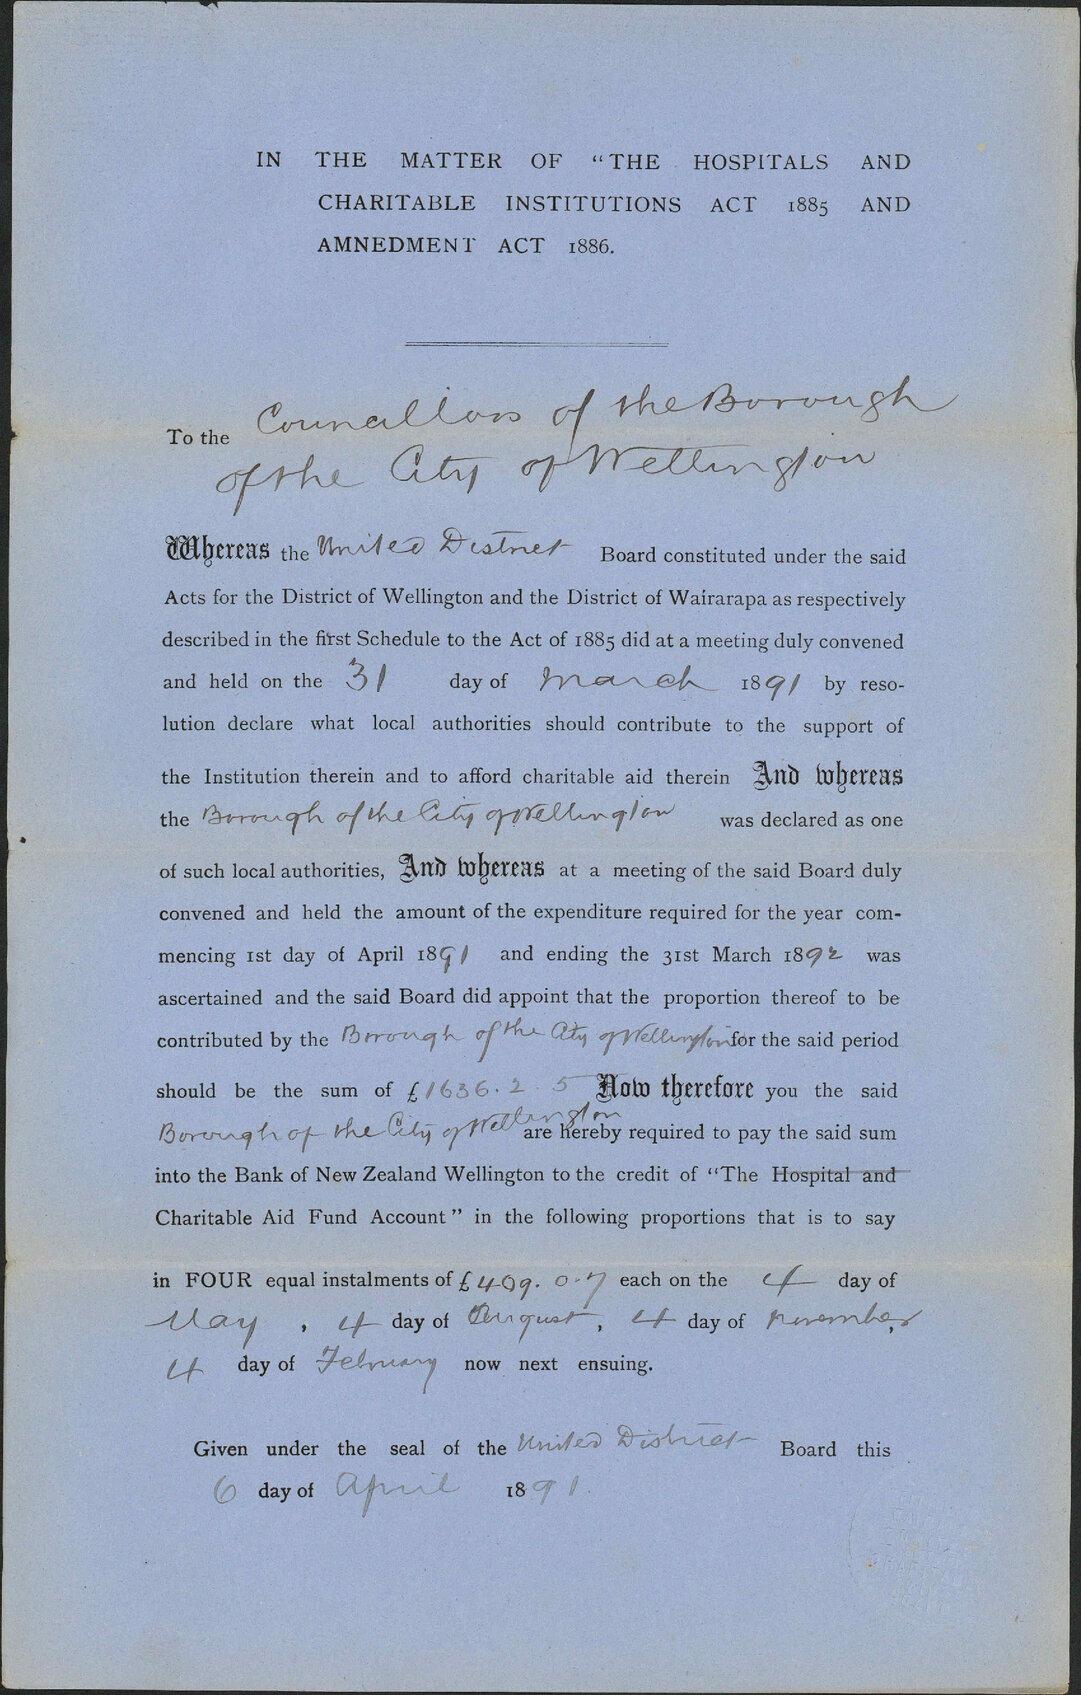 IN THE MATTER OF "THE HOSPITALS AND
CHARITABLE INSTITUTIONS ACT 1885 AND
AMNEDMENT ACT 1886.
To the Councillors of the Borough
of the City of Wellington
Whereas the United District Board constituted under the said
Acts for the District of Wellington and the District of Wairarapa as respectively
described in the first Schedule to the Act of 1885 did at a meeting duly convened
and held on the 31 day of March 1891 by reso-
lution declare what local authorities should contribute to the support of
the Institution therein and to afford charitable aid therein And whereas
the Borough of the City of Wellington was declared as one
of such local authorities, And whereas at a meeting of the said Board duly
convened and held the amount of the expenditure required for the year com-
mencing 1st day of April 1891 and ending the 31st March 1892 was
ascertained and the said Board did appoint that the proportion thereof to be
contributed by the Borough of the City of Wellington for the said period
should be the sum of £1636.2.5 Now therefore you the said
Borough of the City of Wellington are hereby required to pay the said sum
into the Bank of New Zealand Wellington to the credit of "The Hospital and
Charitable Aid Fund Account" in the following proportions that is to say
in FOUR equal instalments of £409.0.7 each on the 4 day of
May, 4 day of August, 4 day of November,
4 day of February now next ensuing.
Given under the seal of the United District Board this
6 day of April 1891.